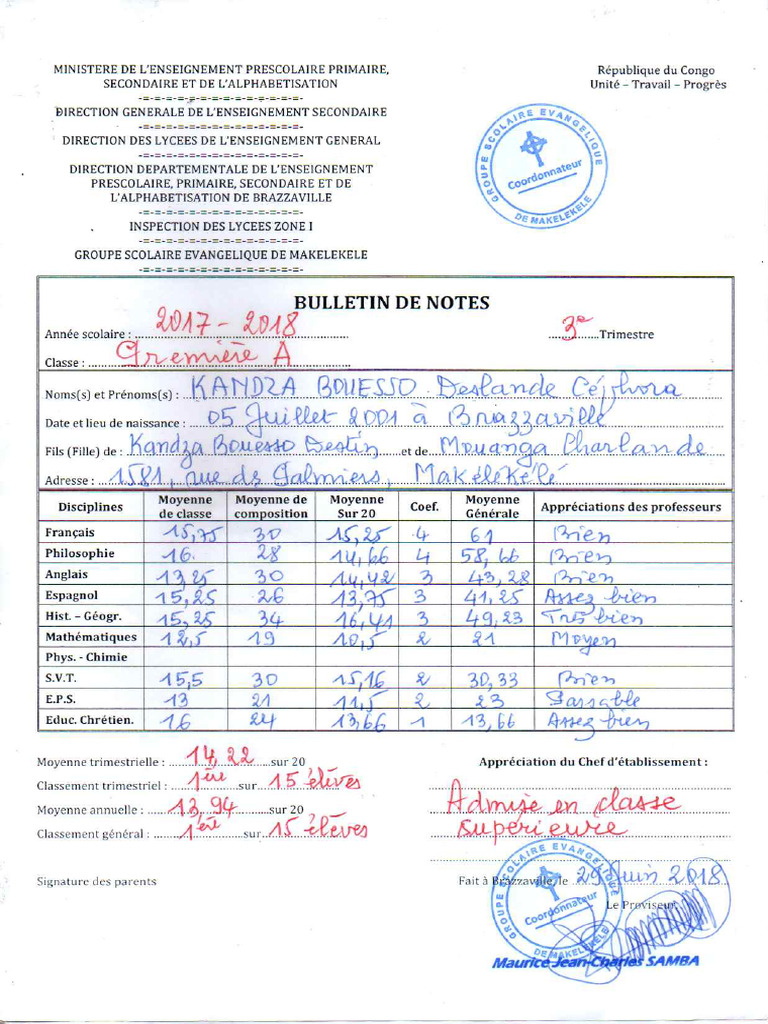 MINISTERE DE L'ENSEIGNEMENT PRESCOLAIRE PRIMAIRE,
SECONDAIRE ET DE L'ALPHABETISATION
-=-=-=-=-=-=-=-=-=-=-=-=-=-=-
DIRECTION GENERALE DE L'ENSEIGNEMENT SECONDAIRE
-=-=-=-=-=-=-=-=-=-=-=-=-=-=-
DIRECTION DES LYCEES DE L'ENSEIGNEMENT GENERAL
-=-=-=-=-=-=-=-=-=-=-=-=-=-=-
DIRECTION DEPARTEMENTALE DE L'ENSEIGNEMENT
PRESCOLAIRE, PRIMAIRE, SECONDAIRE ET DE
L'ALPHABETISATION DE BRAZZAVILLE
-=-=-=-=-=-=-=-=-=-=-=-=-=-=-
INSPECTION DES LYCEES ZONE I
-=-=-=-=-=-=-=-=-=-=-=-=-=-=-
GROUPE SCOLAIRE EVANGELIQUE DE MAKELEKELE
-=-=-=-=-=-=-=-=-=-=-=-=-=-=-
République du Congo
Unité – Travail – Progrès
GROUPE SCOLAIRE EVANGELIQUE
Coordonnateur
DE MAKELEKELE
BULLETIN DE NOTES
Année scolaire : 2017 - 2018 3e Trimestre
Classe : Première A
Noms(s) et Prénoms(s) : KANDZA BOUESSO Deslande Céphora
Date et lieu de naissance : 05 Juillet 2001 à Brazzaville
Fils (Fille) de : Kandza Bouesso Destin et de Mouanga Charlande
Adresse : 1581, rue ds Palmiers, Makélékélé
Disciplines Moyenne de classe Moyenne de composition Moyenne Sur 20 Coef. Moyenne Générale Appréciations des professeurs
Français 15,75 30 15,25 4 61 Bien
Philosophie 16. 28 14,66 4 58,66 Bien
Anglais 13,25 30 14,42 3 43,28 Bien
Espagnol 15,25 26 13,75 3 41,25 Assez bien
Hist. – Géogr. 15,25 34 16,41 3 49,23 Très bien
Mathématiques 12,5 19 10,5 2 21 Moyen
Phys. - Chimie
S.V.T. 15,5 30 15,16 2 30,33 Bien
E.P.S. 13 21 11,5 2 23 Passable
Educ. Chrétien. 16 24 13,66 1 13,66 Assez bien
Moyenne trimestrielle : 14,22 sur 20
Classement trimestriel : 1ère sur 15 élèves
Moyenne annuelle : 13,94 sur 20
Classement général : 1ère sur 15 élèves
Appréciation du Chef d'établissement :
Admise en classe
supérieure
Signature des parents
Fait à Brazzaville, le 29 Juin 2018
Le Proviseur
GROUPE SCOLAIRE EVANGELIQUE
Coordonnateur
DE MAKELEKELE
Maurice Jean-Charles SAMBA